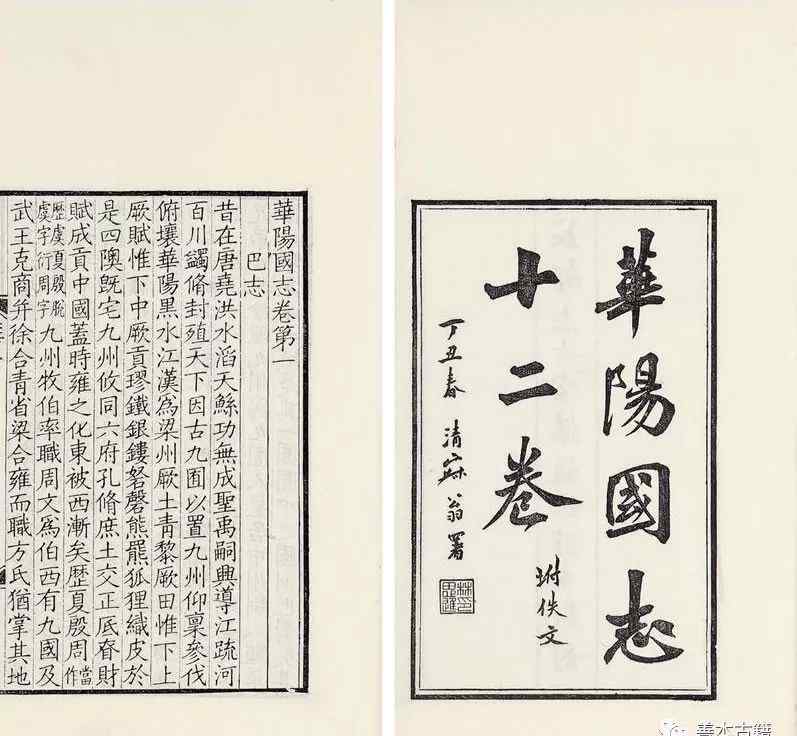 華陽國志
十二卷
坿佚文
丁丑春 清寐翁署
華陽國志卷第一
巴志
昔在唐堯洪水滔天鯀功無成聖禹嗣興導江疏河
百川蠲脩封殖天下因古九囿以置九州仰稟參伐
俯壤華陽黑水江漢為梁州厥土青黎厥田惟下上
厥賦惟下中厥貢璆鐵銀鏤砮磬熊羆狐狸織皮於
是四隩既宅九州攸同六府孔脩庶土交正厎眘財
賦成貢中國蓋時雍之化東被西漸矣歷夏殷周當作
歷虞夏殷脫虞字衍周字九州牧伯率職周文為伯西有九國及
武王克商并徐合青省梁合雍而職方氏猶掌其地
善本古籍